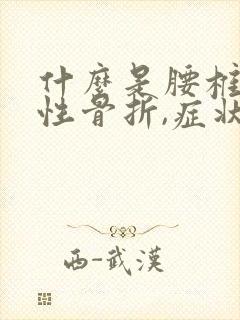 什麼是腰椎
性骨折,症狀
西-武漢